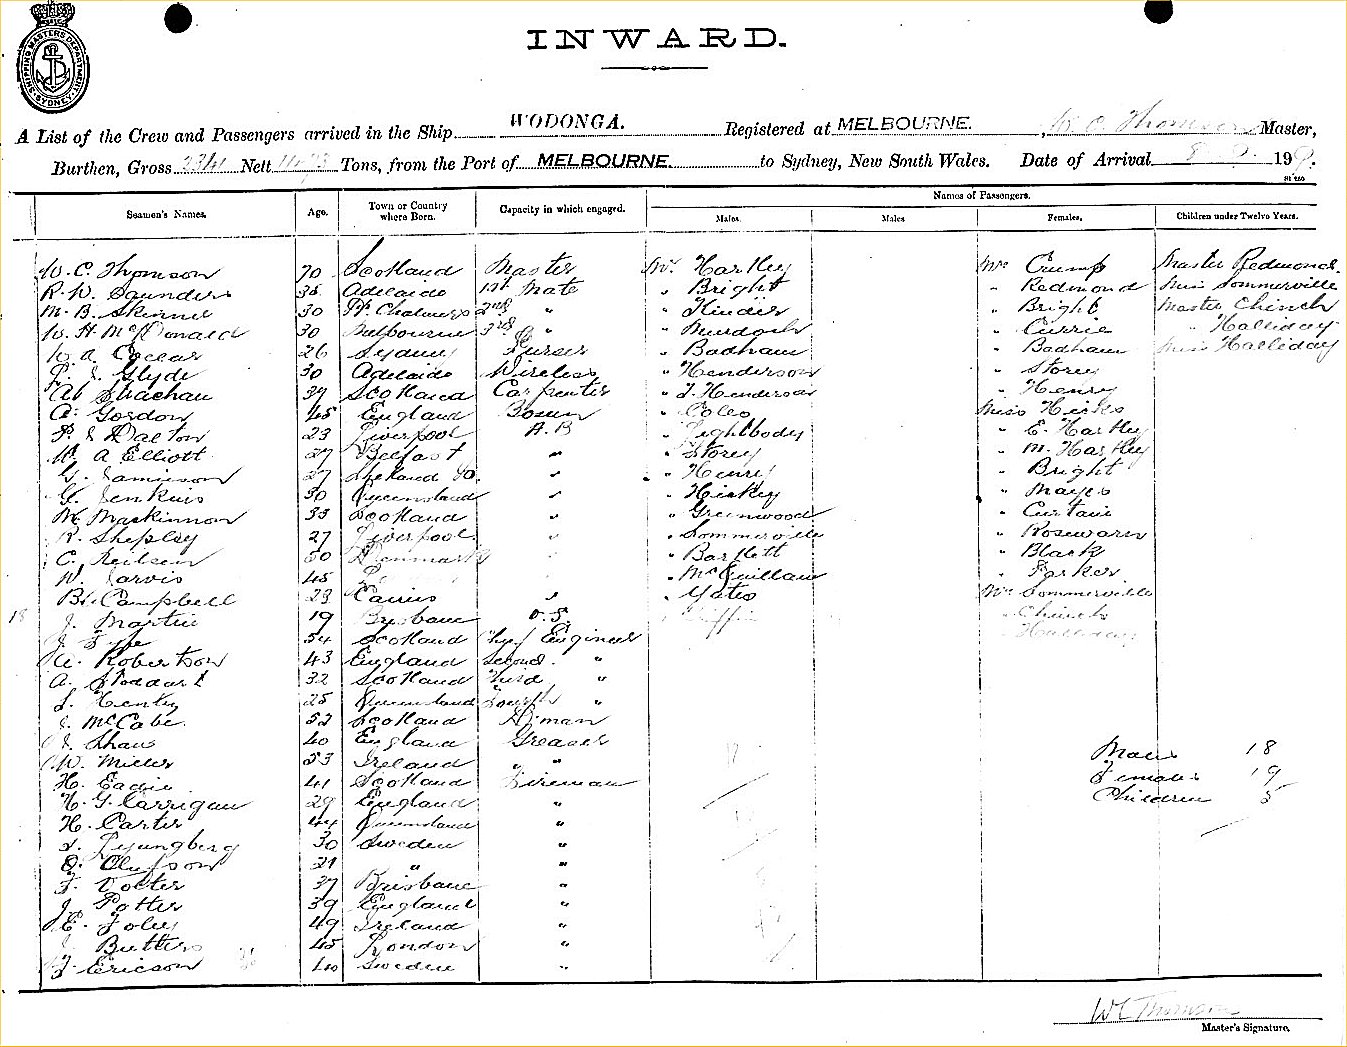 SHIPPING MASTERS DEPARTMENT SYDNEY
INWARD.
A List of the Crew and Passengers arrived in the Ship WODONGA. Registered at MELBOURNE. W. C. Thomson Master,
Burthen, Gross 2341 Nett Tons, from the Port of MELBOURNE to Sydney, New South Wales. Date of Arrival 8 9. 19
Seamen's Names. Age. Town or Country where Born. Capacity in which engaged. Names of Passengers.
Males. Males Females. Children under Twelve Years.
W. C. Thomson 70 Scotland Master Mr Hartley Mrs Crump Master Redmond.
R. W. Saunders 35 Adelaide 1st Mate " Bright " Redmond Miss Sommerville
M. B. Skinner 30 Pt. Chalmers 2nd " " Kinder " Bright. Master Chinch
W. H. McDonald 30 Melbourne 3rd " " Murdoch " Currie " Halliday
W. A. 26 Sydney Purser " Badham " Badham Miss Halliday
Glyde 30 Adelaide Wireless " Henderson " Storey
A. Strachan 39 Scotland Carpenter " J. Henderson " Henry
A. Gordon 45 England Bosun " Coles Miss Hicks
P. J. Dalton 23 Liverpool A. B " Lightbody " E. Hartley
W. A Elliott 27 Belfast " " Storey " M. Hartley
G. Jamieson 27 Shetland Is. " " Henry " Bright
G. Jenkins 30 Queensland " " Hickey " Mayes
M. Mackinnon 33 Scotland " " Greenwood " Curtain
R. Shepley 27 Liverpool " " Sommerville " Rosewarn
C. Neilsen 50 Denmark " " Bartlett " Black
W. Jarvis 45 " McQuillan " Parker
B. Campbell 23 Cairns " " Yates Mrs Sommerville
18 J. Martin 19 Brisbane O.S. " Chinch
J. Fype 54 Scotland Chief Engineer " Halliday
A. Robertson 43 England Second. "
A. Stoddart 32 Scotland Third "
Henley 25 Queensland Fourth "
J. McCabe 52 Scotland D/man
J. Shaw 40 England Greaser
W. Miller 53 Ireland " " Males 18
H. Eadie 41 Scotland Fireman Females 19
H. G. Carrigan 29 England " Children 5
H. Carter 44 Queensland "
Ljungberg 30 Sweden "
O. Olufson 31 " "
F. Volter 37 Brisbane "
J. Potter 39 England "
E. Foley 49 Ireland "
J. Butters 45 London "
F. Ericson 40 Sweden "
WC Thomson
Master's Signature.